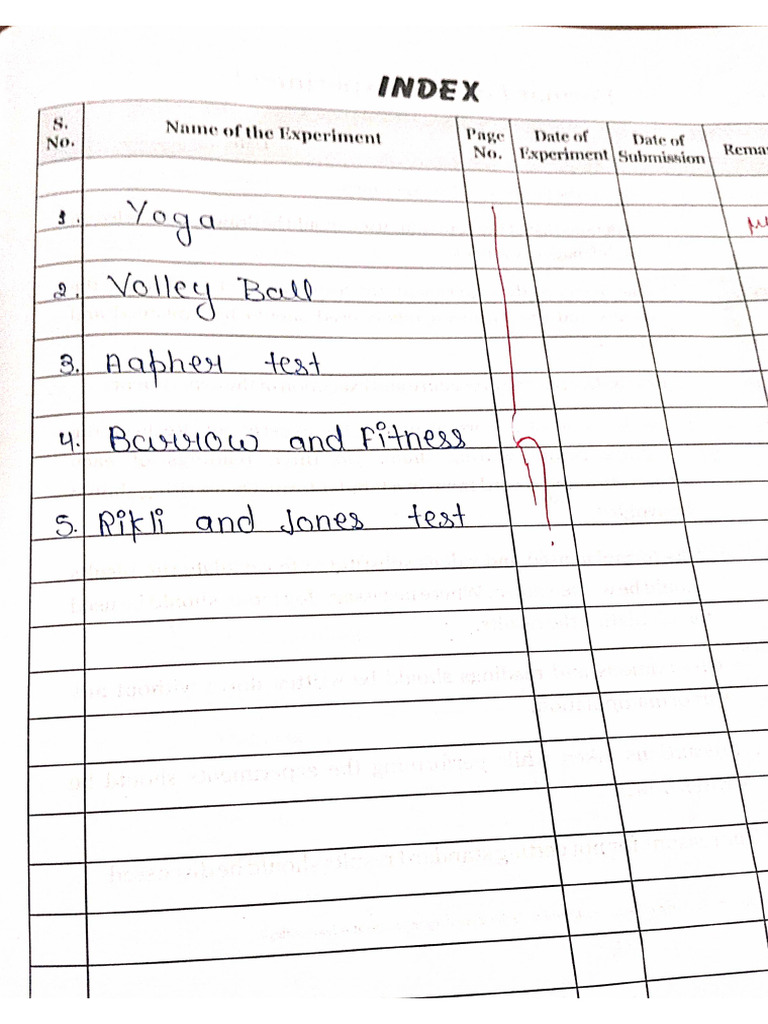 INDEX
S. No. Name of the Experiment Page No. Date of Experiment Date of Submission Rema
1. Yoga
2. Volley Ball
3. Aapher test
4. Barrow and Fitness
5. Rikli and Jones test